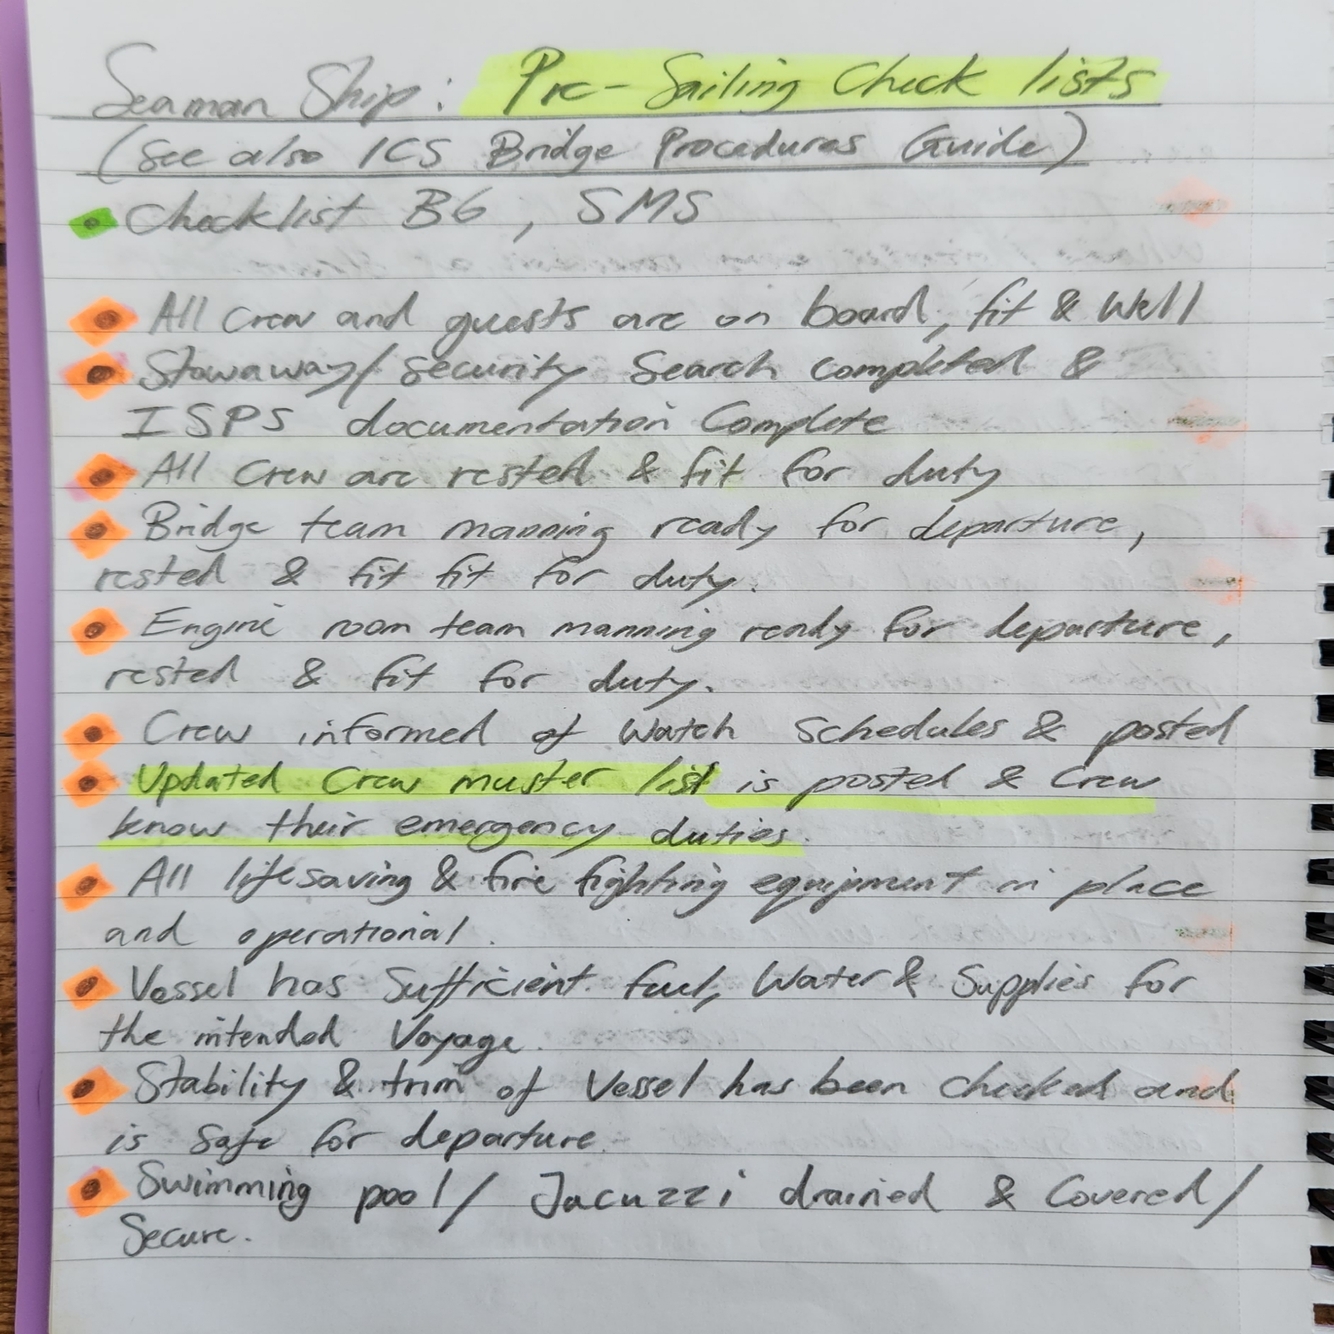 Seaman Ship: Pre-Sailing Check lists
(See also ICS Bridge Procedures Guide)
Checklist B6, SMS
All crew and guests are on board, fit & Well
Stowaway/security Search completed &
ISPS documentation Complete
All crew are rested & fit for duty
Bridge team manning ready for departure,
rested & fit fit for duty.
Engine room team manning ready for departure,
rested & fit for duty.
Crew informed of Watch Schedules & posted
Updated Crew muster list is posted & Crew
know their emergency duties.
All lifesaving & fire fighting equipment in place
and operational.
Vessel has Sufficient fuel, Water & Supplies for
the intended Voyage.
Stability & trim of Vessel has been checked and
is safe for departure.
Swimming pool/ Jacuzzi drained & Covered/
Secure.